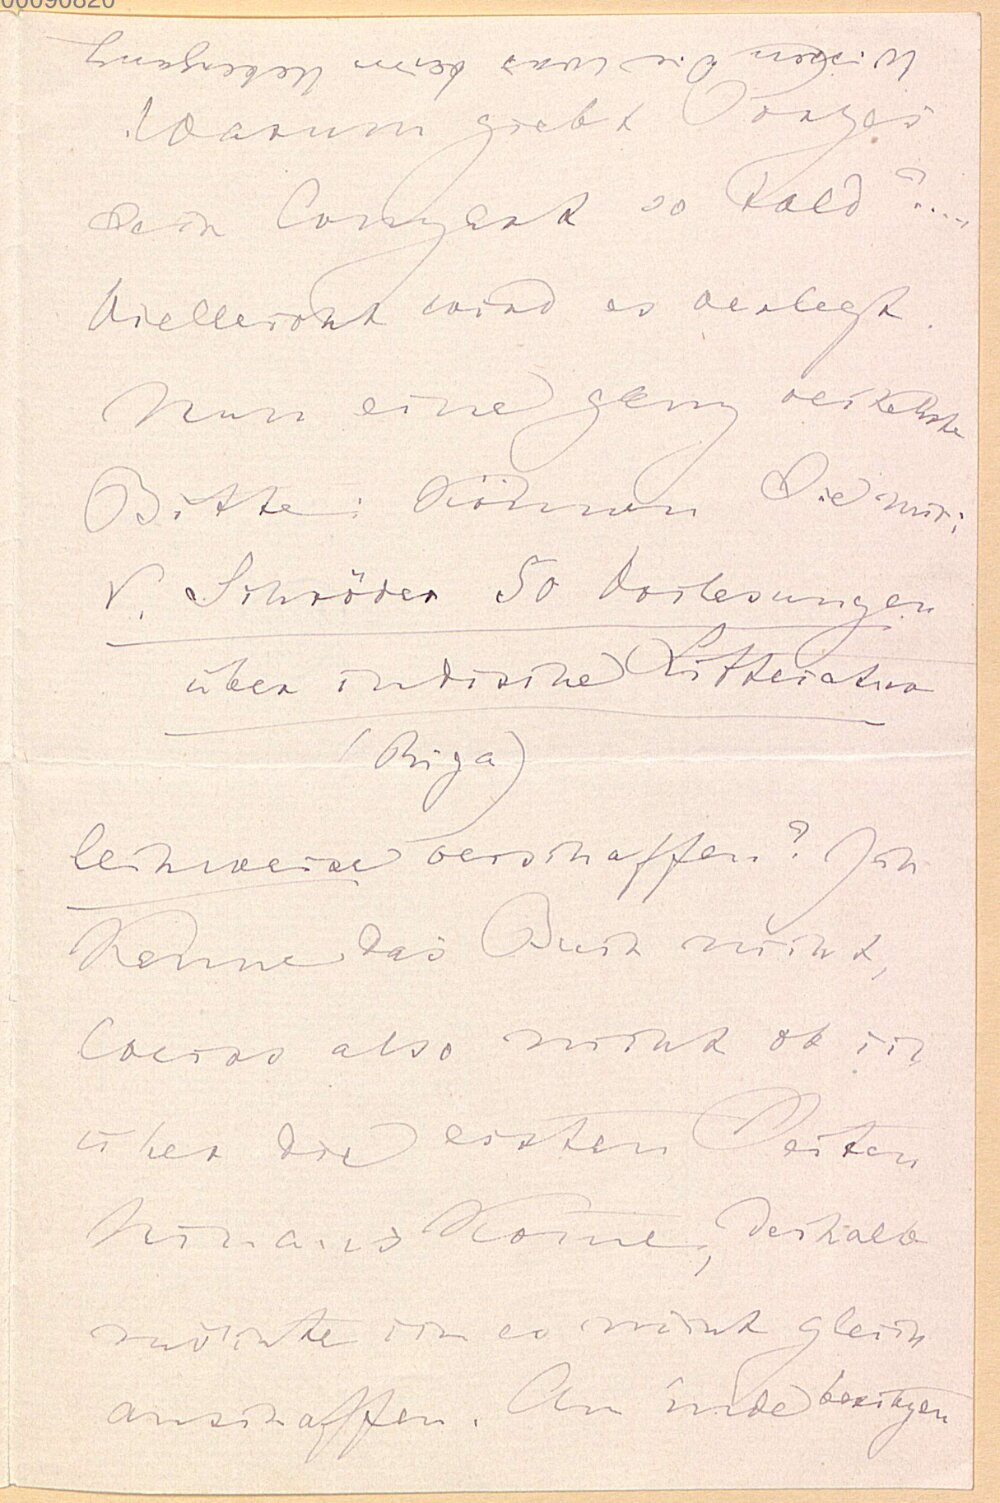 00090820
Wissen Sie was beim Uebergang
Warum giebt Porges
sein Conzert so bald ?....
Vielleicht wird es verlegt.
Nun eine ganz verkehrte
Bitte: Können Sie mir:
v. Schröder 50 Vorlesungen
über indische Litteratur
(Riga)
leihweise verschaffen? Ich
Kenne das Buch nicht,
weiss also nicht ob ich
über die ersten Seiten
hinaus Kom̅e, deshalb
möchte ich es nicht gleich
anschaffen. Am Ende besitzen